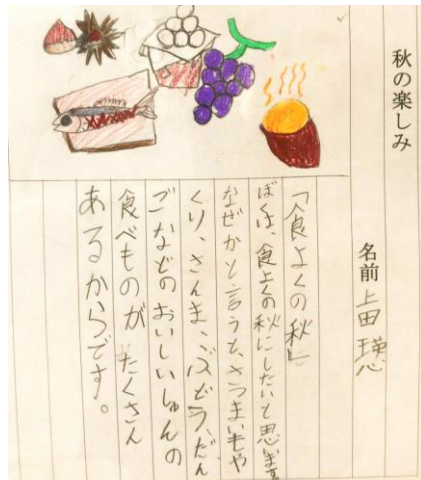 秋の楽しみ
名前 上田 瑛心
「食よくの秋」
ぼくは、食よくの秋にしたいと思います。
なぜかと言うと、さつまいもや
くり、さんま、ぶどう、だん
ごなどのおいしいしゅんの
食べものが たくさん
あるからです。